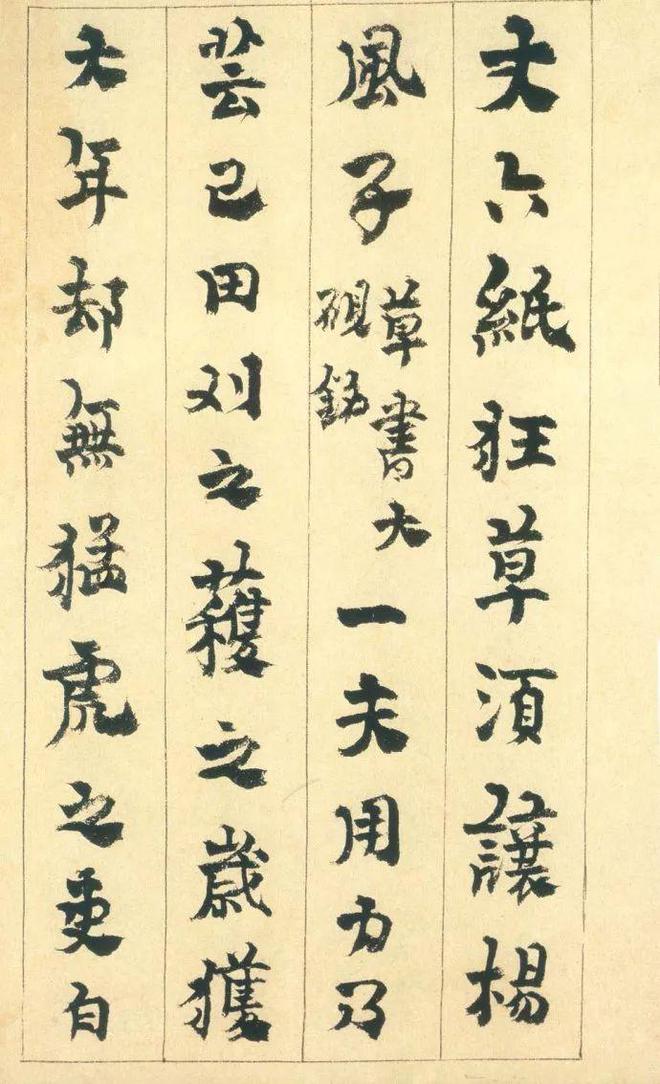 丈六紙狂草湏讓楊
風子
草書大
硯銘
一夫用力乃
芸己田刈之穫之歲獲
大年却無猛虎之吏自